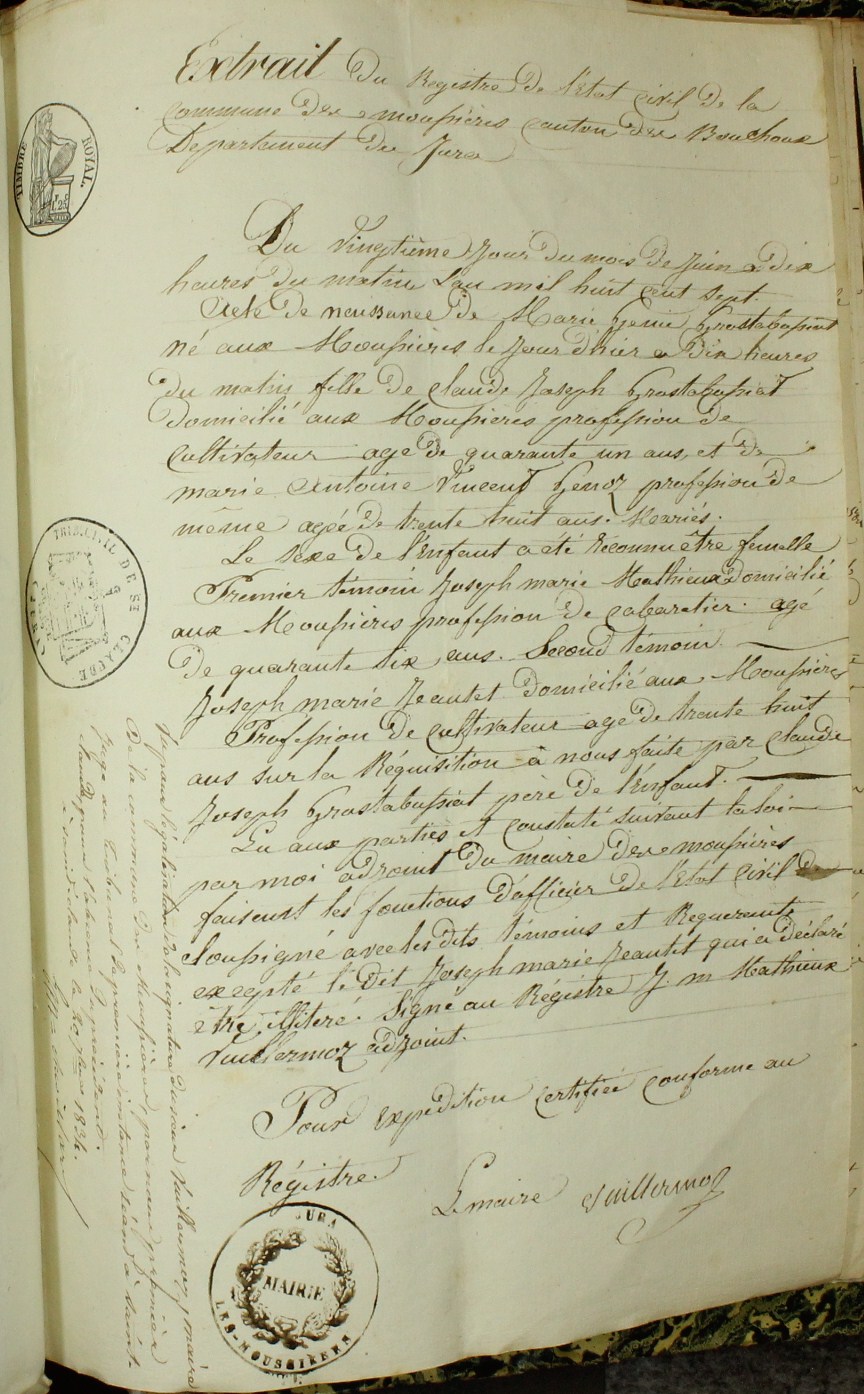 Extrait du Registre de l'Etat Civil de la
Commune des moussières canton des Bouchoux
Département du Jura
TIMBRE ROYAL.
1f 25c
Du Vingtième Jour du mois de Juin a dix
heures du matin Lan mil huit cent sept.
Acte de naissance de Marie Génie Grostabussiat
né aux Moussières le Jour dhier a dix heures
du matin fille de Claude Joseph Grostabussiat
domicilié aux Moussières profession de
Cultivateur agé de quarante un ans, et de
marie Antoine Vincent Genoz profession de
même agée de trente huit ans. Mariés.
Le sexe de l'Enfant a été Reconnu être femelle
Premier témoin Joseph marie Mathieux domicilié
aux Moussières profession de Cabaretier. agé
de quarante six ans. Second témoin.
Joseph marie Jeantet domicilié aux Moussières
Profession de cultivateur age de trente huit
ans sur la Réquisition à nous faite par Claude
Joseph Grostabussiat père de l'Enfant.
Lu aux parties et Constaté suivant la loi
par moi adjoint du maire des moussières
faisent les fonctions d'officier de l'Etat Civil
soussigné avec les dits témoins et Requerante
excepté le dit Joseph marie Jeantet qui a déclaré
être illiteré. Signé au Régistre J. m Mathieux
Vuillermoz adjoint.
Pour expédition certifiée conforme au
Régistre
Le maire Vuillermoz
TRIB. CIVIL DE ST. CLAUDE
JURA
MAIRIE
LES-MOUSSIERES
Vu pour légalisation de la signature du sieur Vuillermoz, maire
De la commune des Moussières, par nous premier
Juge au Tribunal de première instance séant à Saint
Claude, pour l'absence du président.
à Saint Claude le 20 1834.